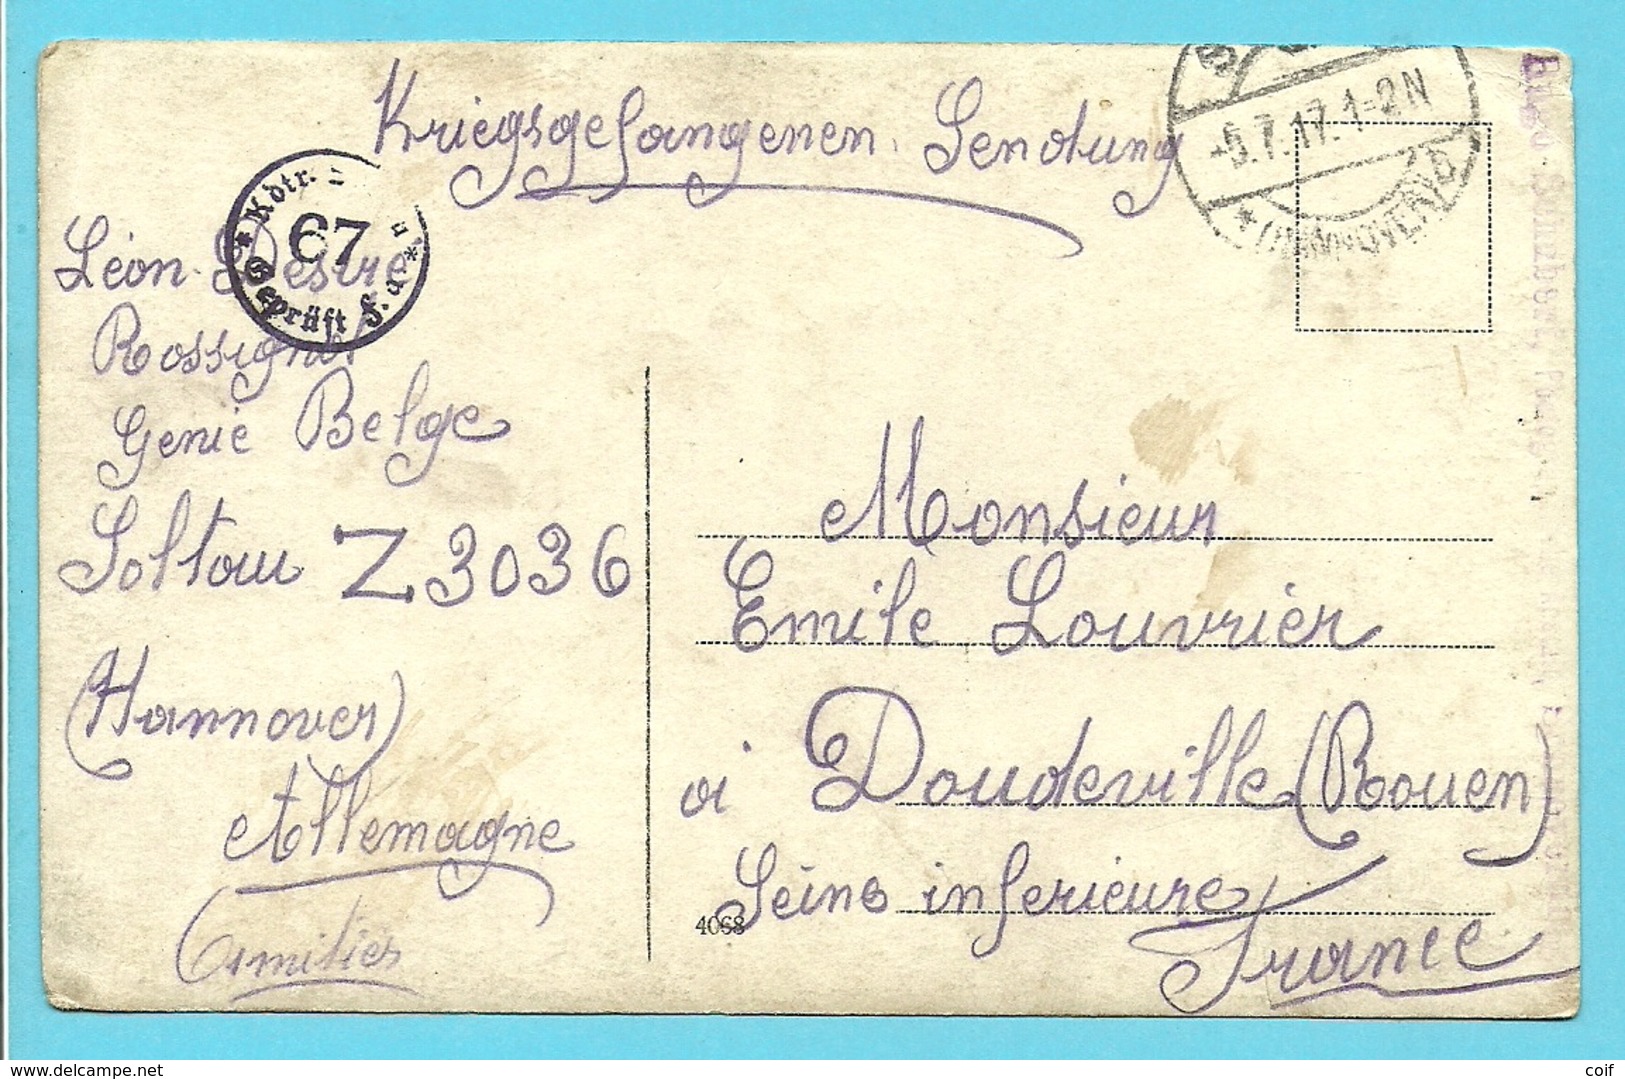 Kriegsgefangenen. Sendung
-5.7.17.1-2N
* (HANNOVER)
* Kdtr.
67
Geprüft F.a. *
Léon Destre
Rossignol
Genie Belge
Soltau Z3036
(Hannover)
Allemagne
Amitiés
Monsieur
Emile Louvrier
à Doudeville (Rouen)
Seine inferieure
France
4068
www.delcampe.net
coif